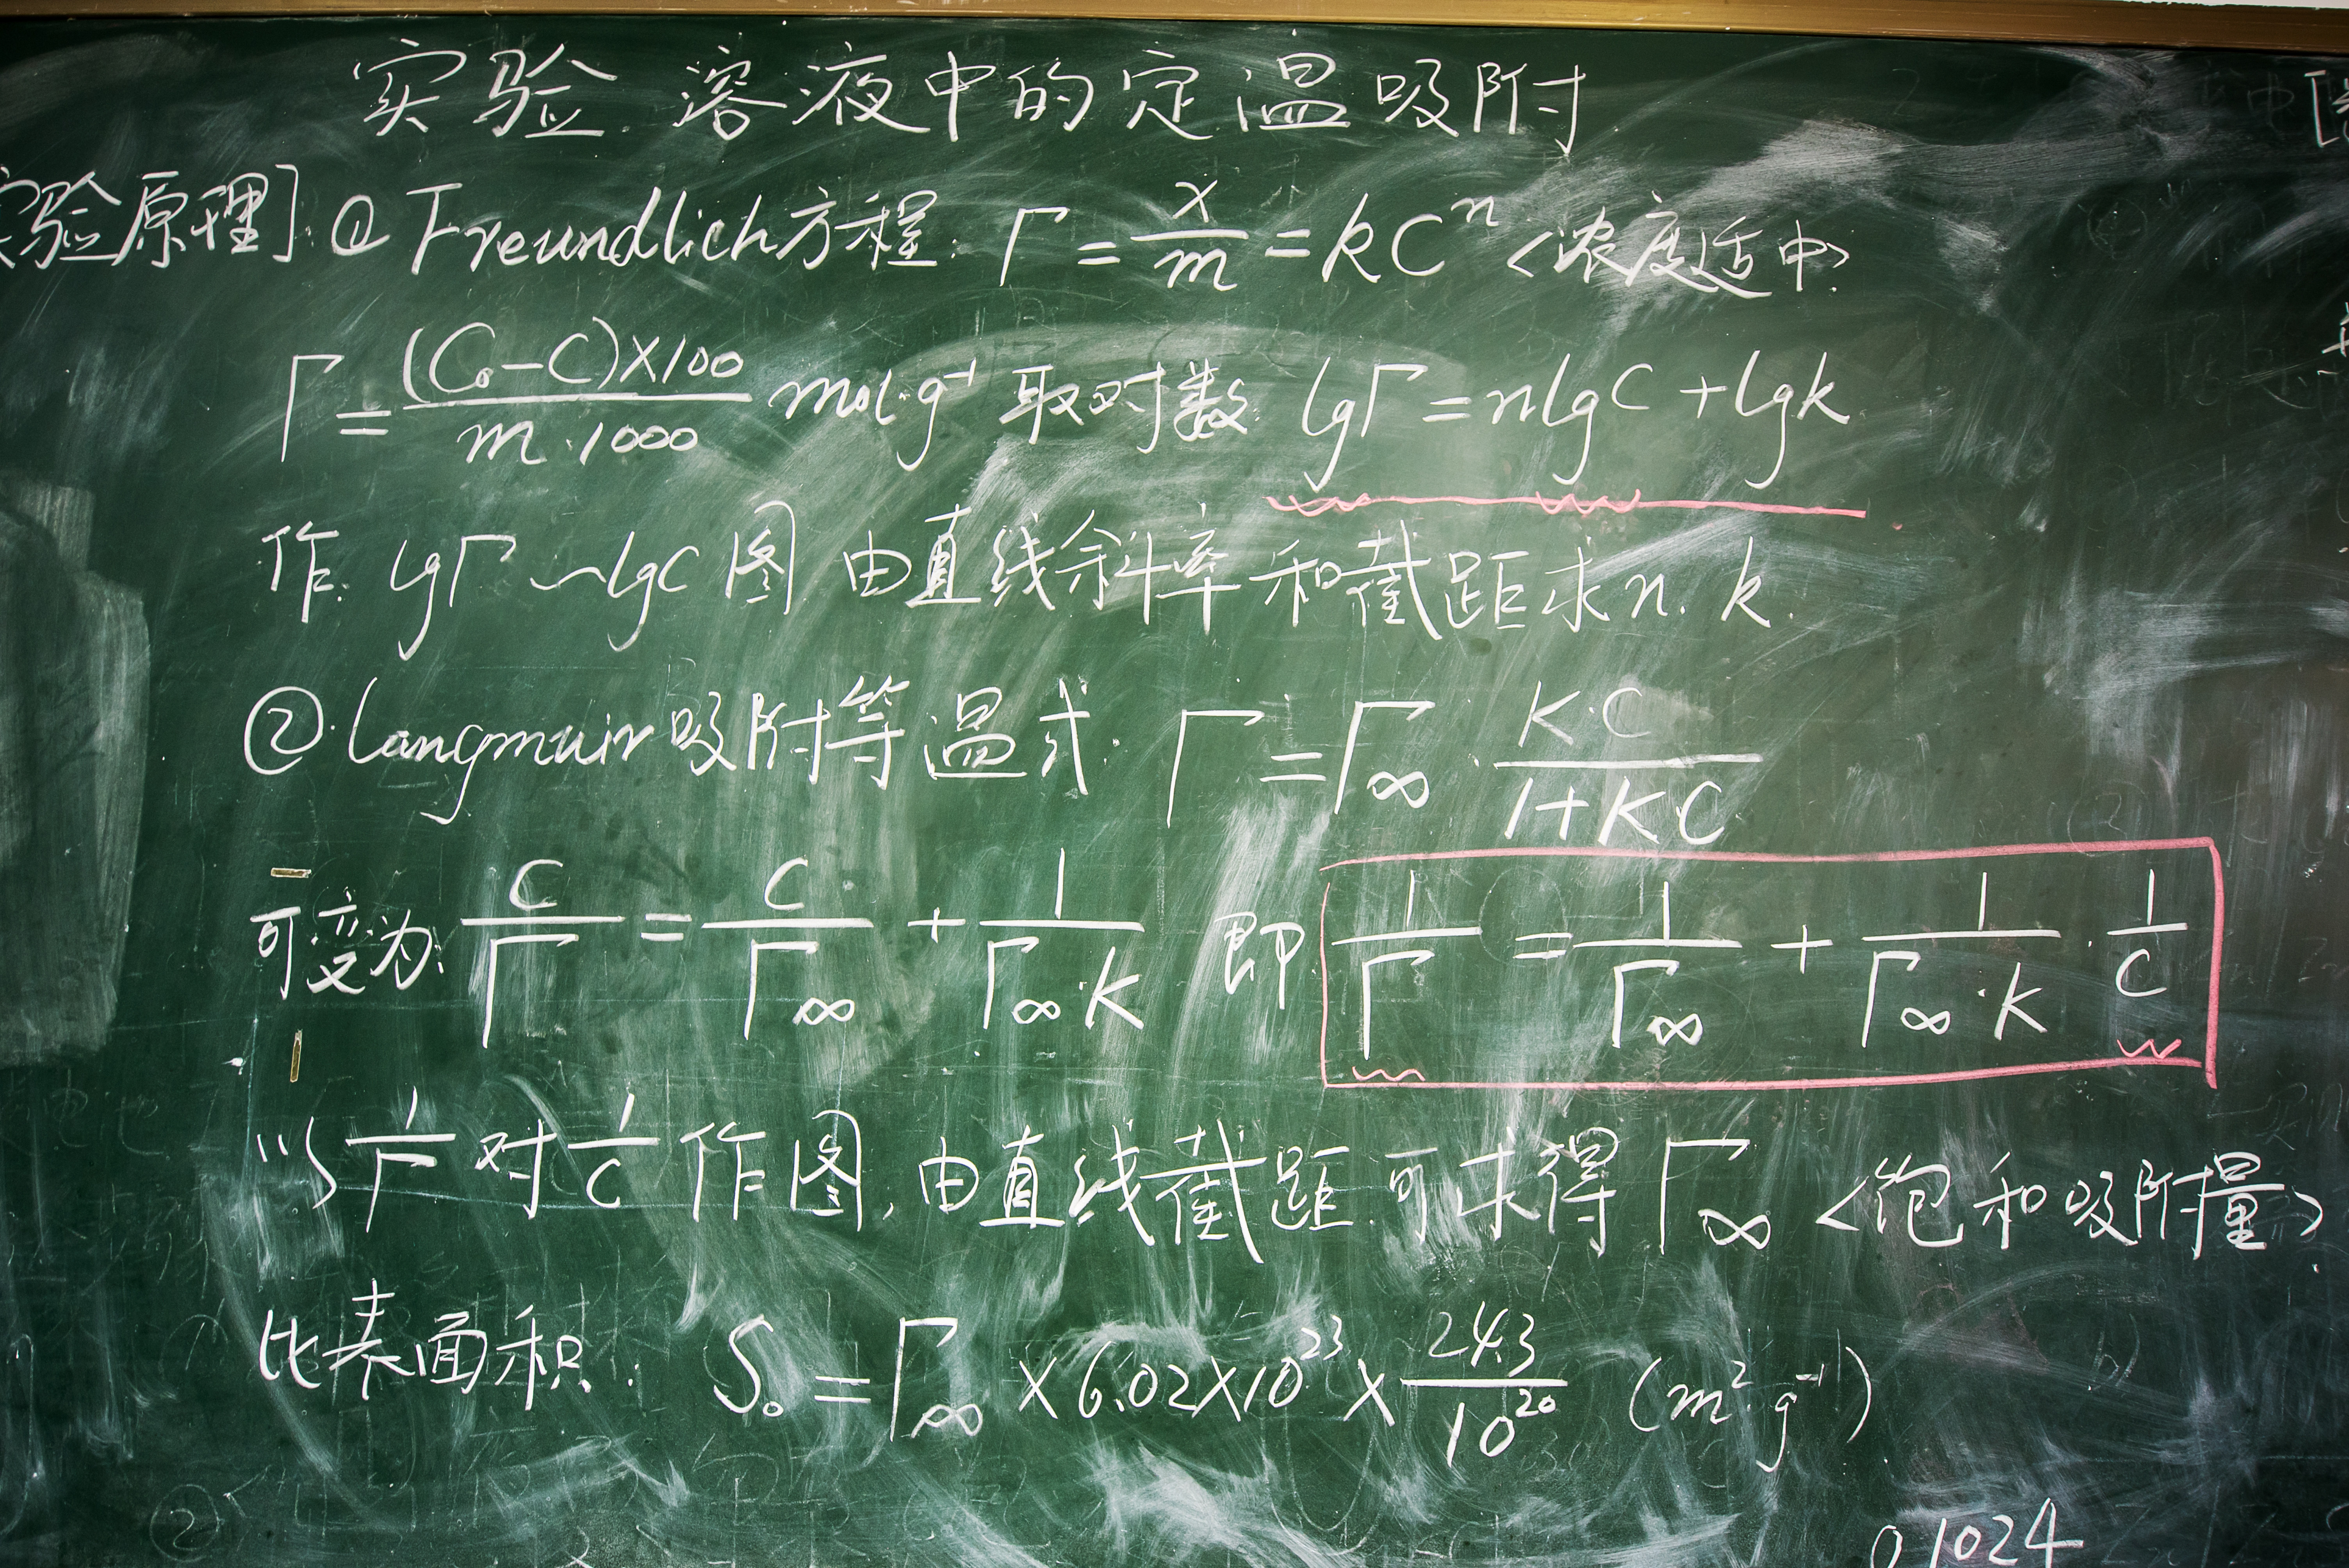 实验 溶液中的定温吸附
实验原理] ① Freundlich方程: Γ = x/m = kCⁿ <浓度适中>
Γ = (C₀-C)×100 / m·1000 mol·g⁻¹ 取对数: lgΓ = nlgC + lgk
作 lgΓ~lgC 图 由直线斜率和截距求 n. k.
② Langmuir吸附等温式: Γ = Γ∞ · K·C / 1+KC
可变为: C/Γ = C/Γ∞ + 1/Γ∞·K 即 1/Γ = 1/Γ∞ + 1/Γ∞·K · 1/C
以 1/Γ 对 1/C 作图, 由直线截距可求得 Γ∞ <饱和吸附量>
比表面积: S₀ = Γ∞ × 6.02×10²³ × 24.3/10²⁰ (m²·g⁻¹)
0.1024